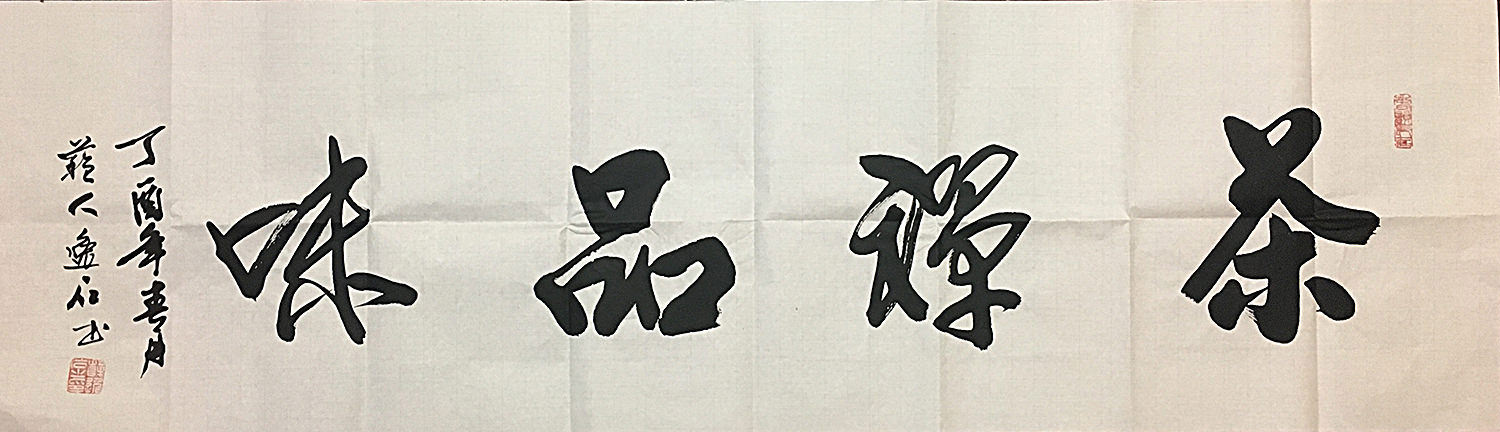 茶禪品味
丁酉年春月
人逸石书